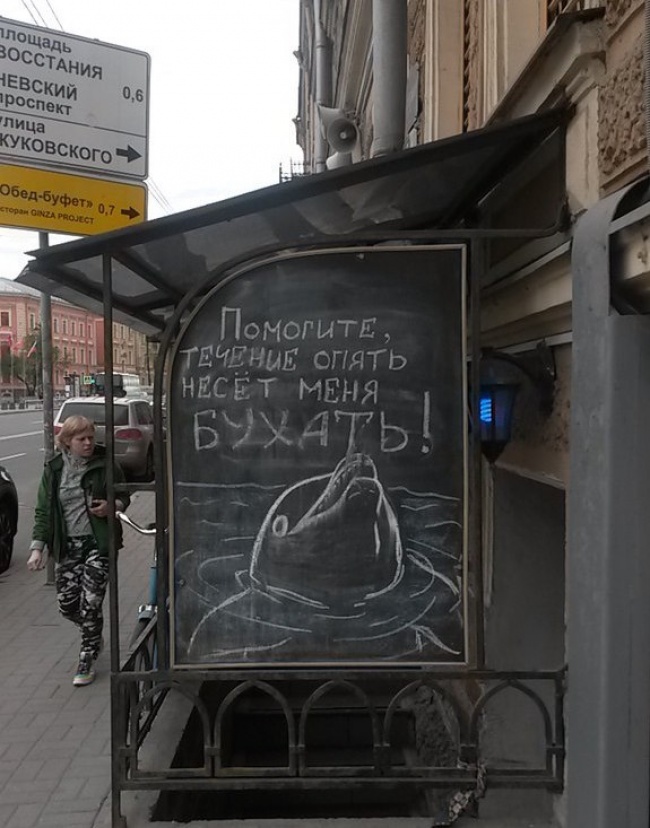 площадь
ВОССТАНИЯ
НЕВСКИЙ
проспект 0,6
улица
ЖУКОВСКОГО
«Обед-буфет» 0,7
ресторан GINZA PROJECT
Помогите,
течение опять
несёт меня
БУХАТЬ!